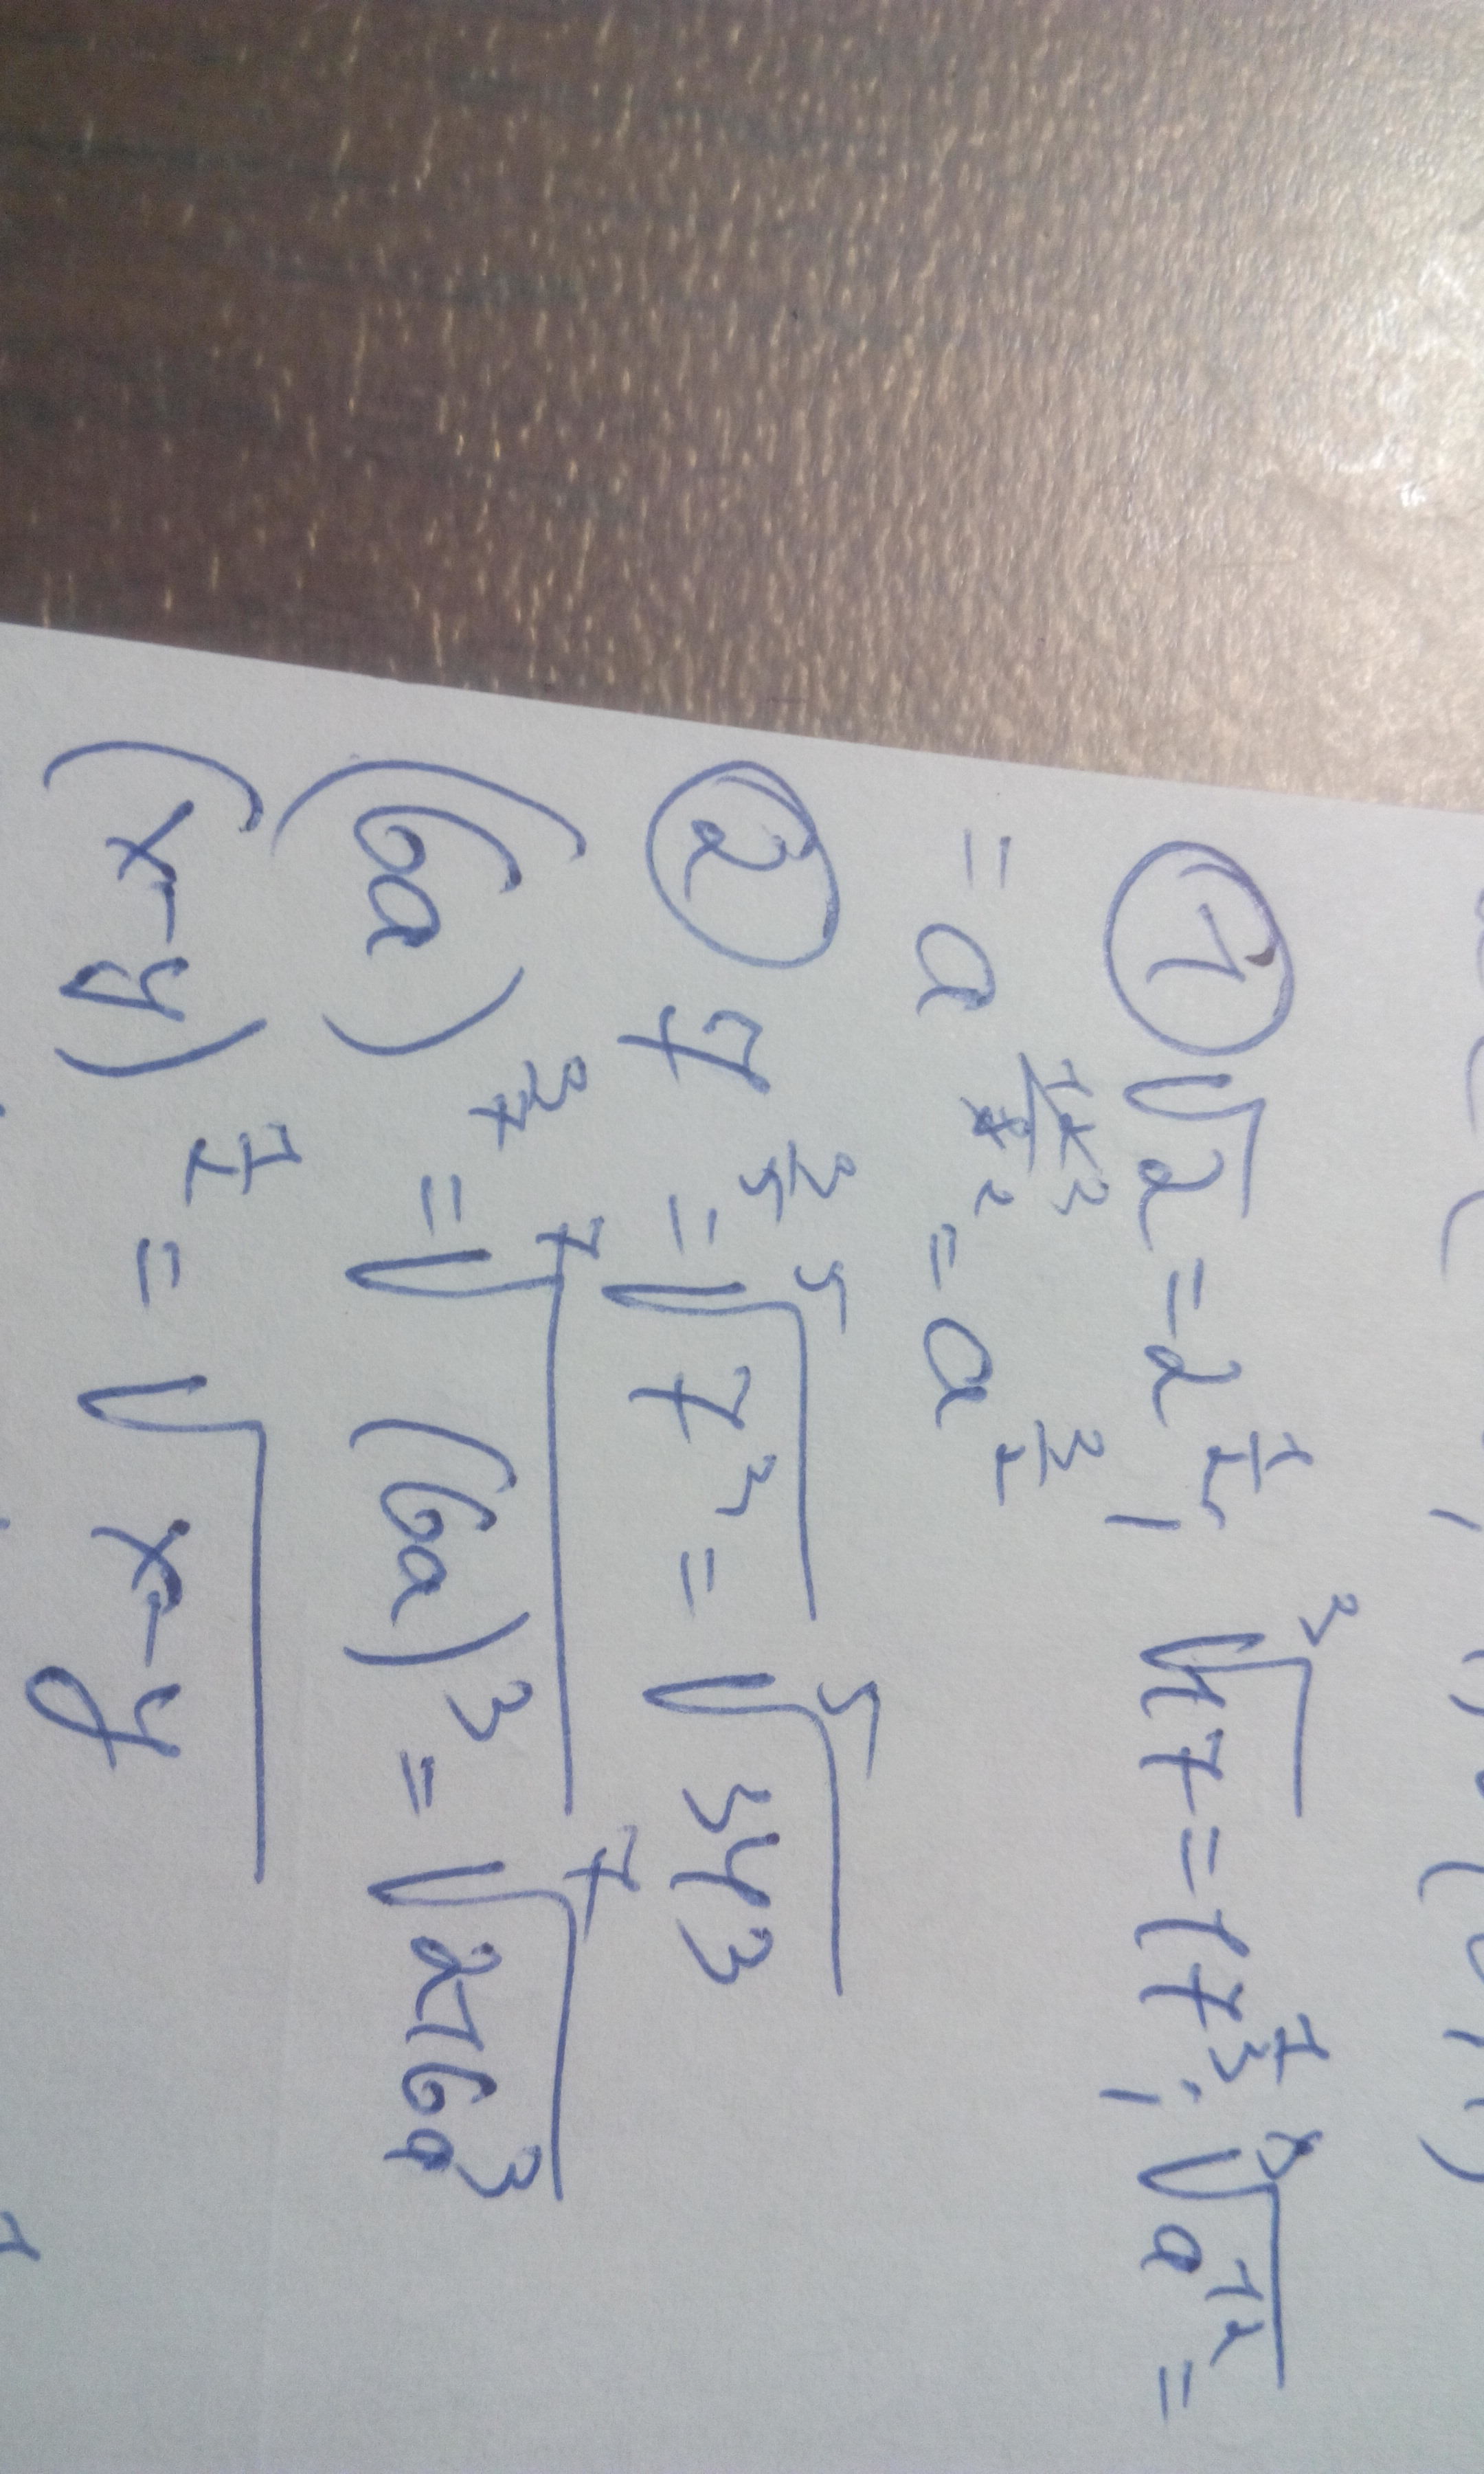 ① √2 = 2^(1/2), ³√17 = 17^(1/3); ⁸√a¹² =
= a^(12/8) = a^(3/2)
② 7^(3/5) = ⁵√7³ = ⁵√343
(6a)^(3/7) = ⁷√(6a)³ = ⁷√216a³
(x-y) = √x-y